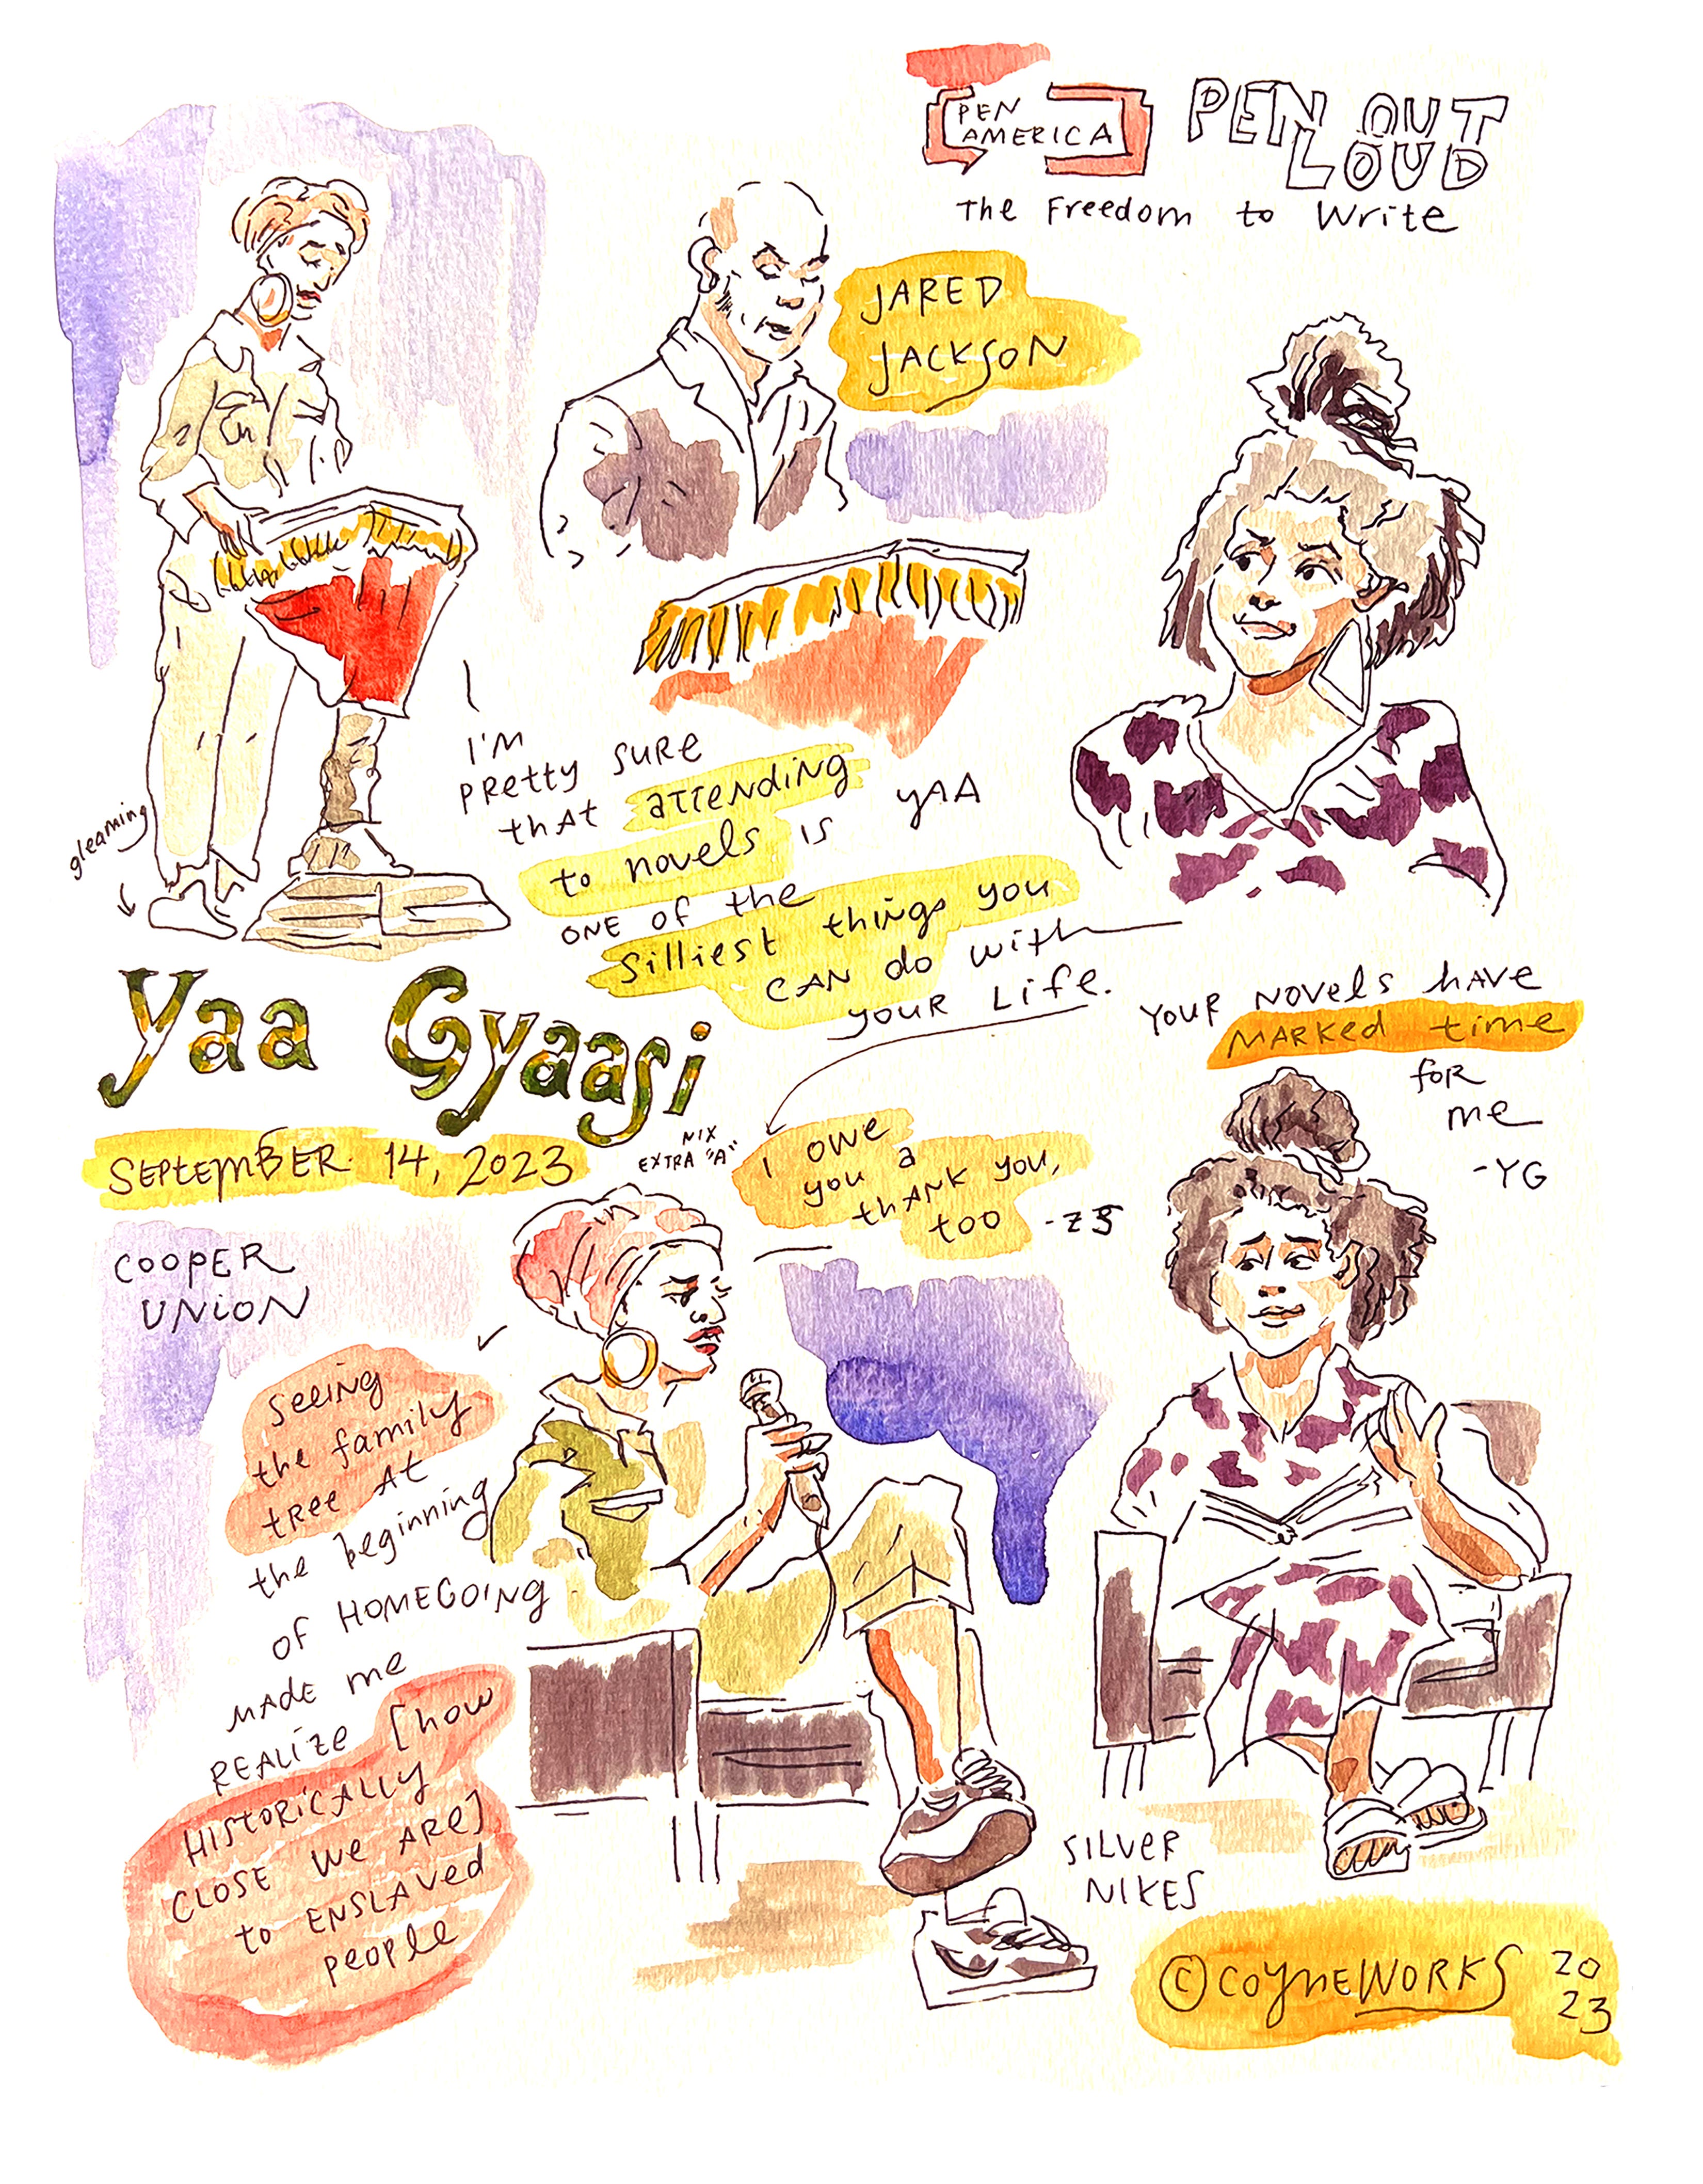 PEN
AMERICA
PEN OUT
LOUD
The Freedom to Write
JARED
JACKSON
I'M
PRETTY SURE
thAt attending
to novels is
ONE of the
silliest things you
CAN do with
YOUR LIFE.
YAA
gleaming
Yaa Gyaasi
NIX
EXTRA "A"
SEPTEMBER 14, 2023
COOPER
UNION
YOUR NOVELS HAVE
MARKED time
for
me
-YG
I OWE
you a
thANK you,
too -ZS
Seeing
the family
tREE At
the beginning
of HOMEGOING
MADE me
REALIZE [how
HISTORICALLY
CLOSE WE ARE]
to ENSLAVED
people
SILVER
NIKES
©COYNEWORKS 20
23